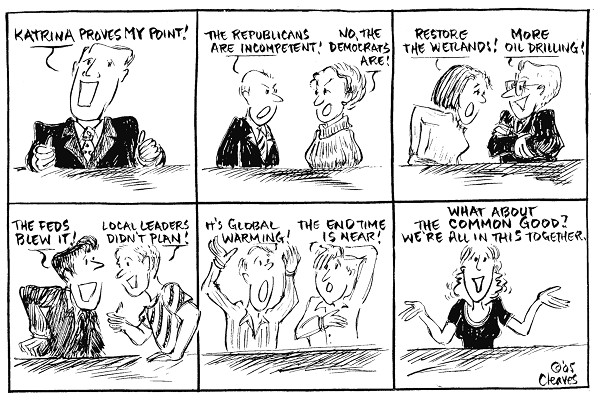 KATRINA PROVES MY POINT!
THE REPUBLICANS
ARE INCOMPETENT!
NO, THE
DEMOCRATS
ARE!
RESTORE
THE WETLANDS!
MORE
OIL DRILLING!
THE FEDS
BLEW IT!
LOCAL LEADERS
DIDN'T PLAN!
IT'S GLOBAL
WARMING!
THE END TIME
IS NEAR!
WHAT ABOUT
THE COMMON GOOD?
WE'RE ALL IN THIS TOGETHER.
©'05
Cleaves